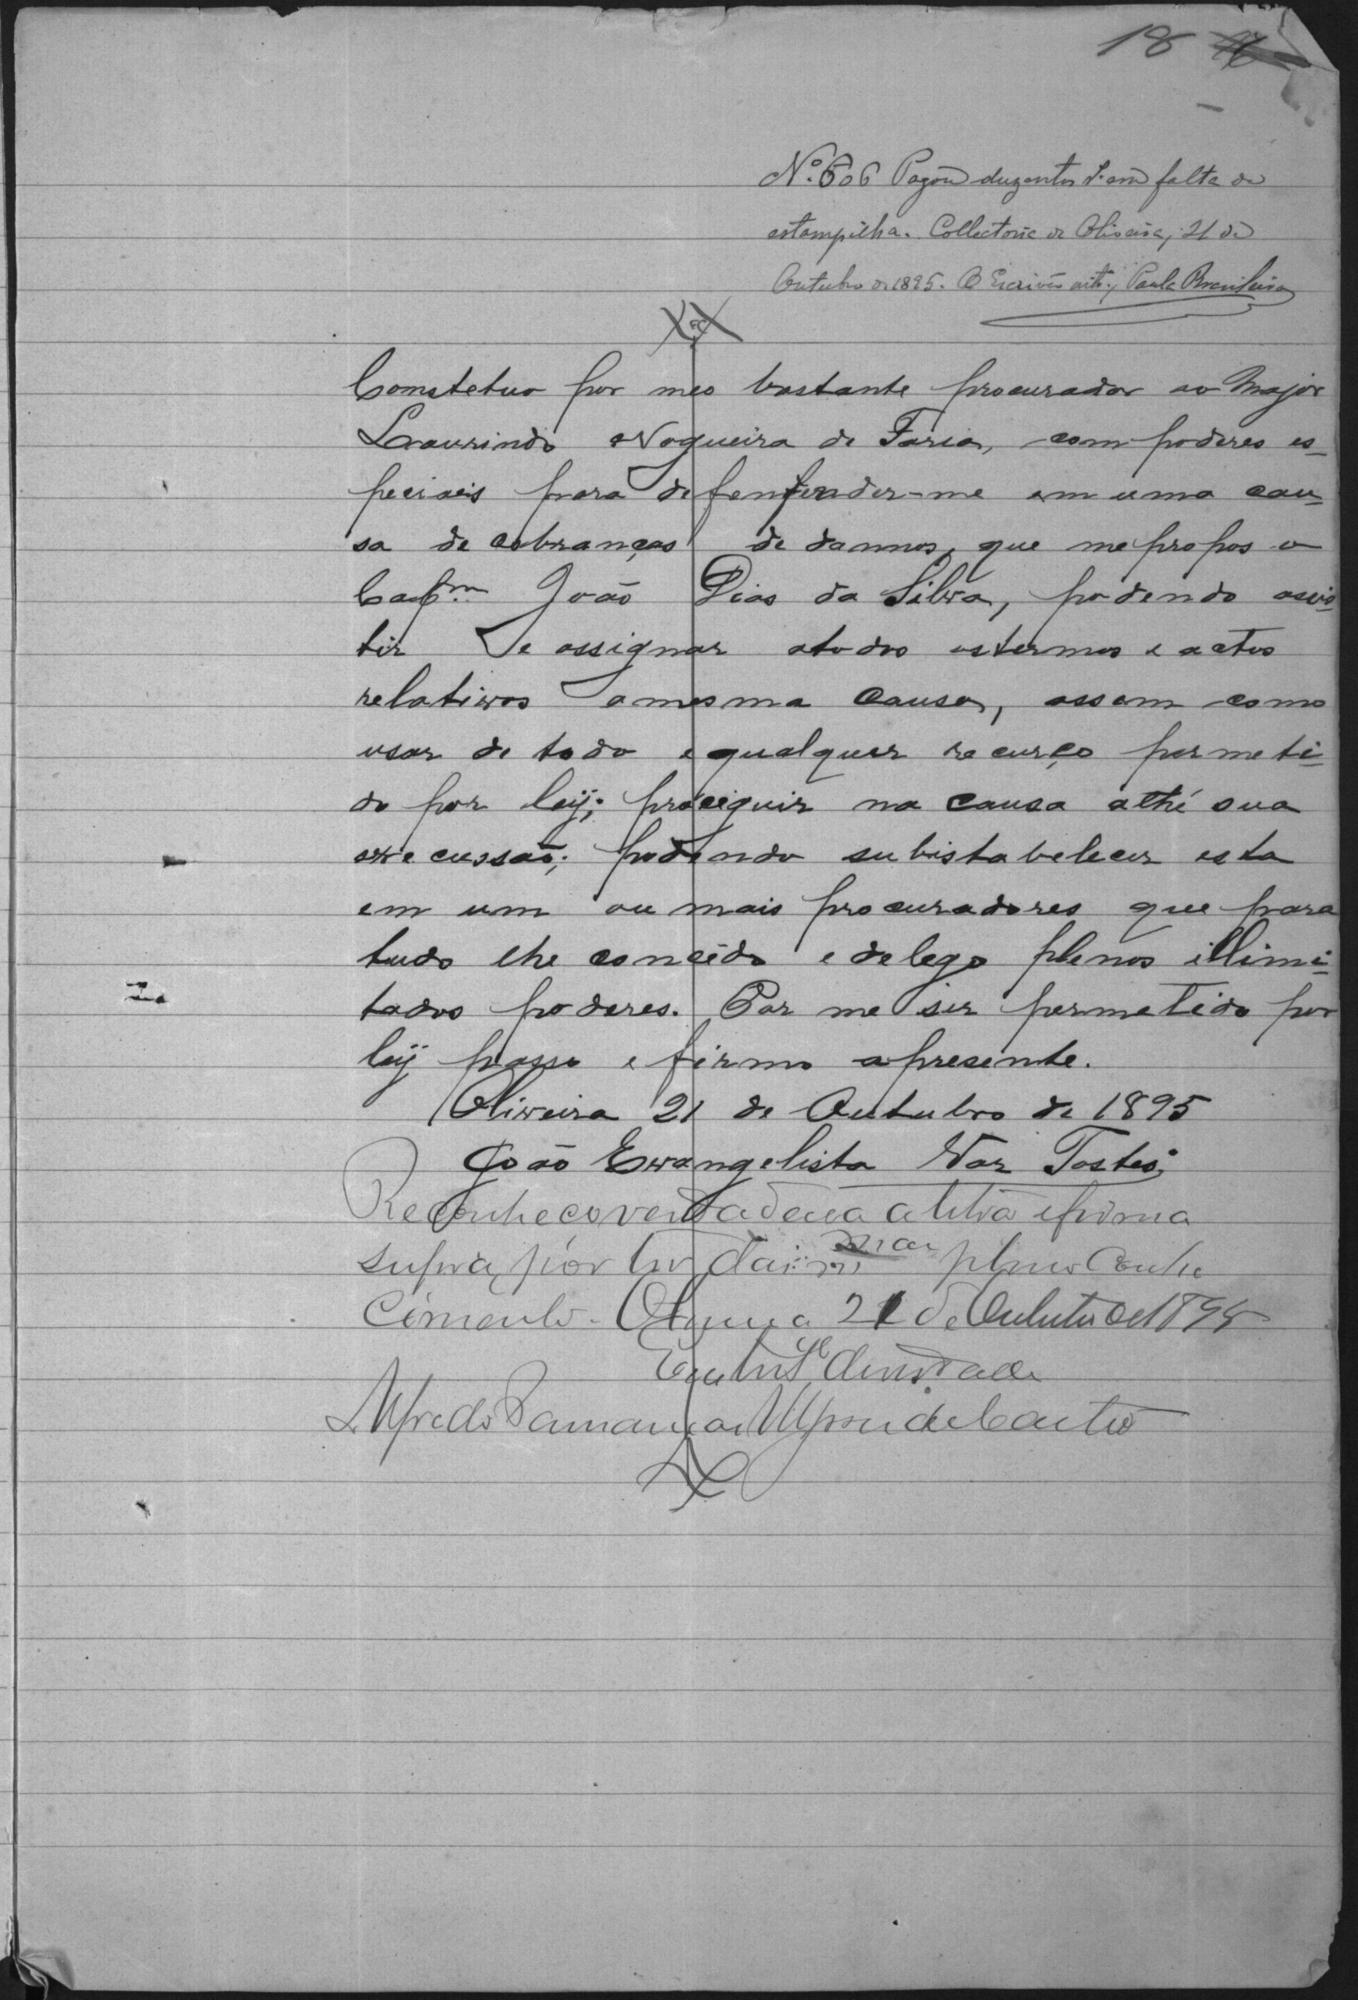 18
Nº 606 Pagou duzentos rs. em falta de
estampilha. Collectoria de Oliveira, 21 de
Outubro de 1895. O Escrivão Paula Brasileiro
Constetuo por meo bastante procurador ao Major
Laurindo Nogueira de Faria, com poderes es-
peciaes para defenfender-me em uma cau-
sa de cobranças de damnos, que me propos o
Capm João Dias da Silva, podendo assis-
tir e assignar atodos os termos e actos
relativos amesma causa, assem como
usar de todo e qualquer recurço permeti-
do por leÿ; prociguir na causa athé sua
execussão; podendo subistabelecer esta
em um ou mais procuradores que para
tudo lhe concedo e delego plenos illimi-
tados poderes. Por me ser permetido por
leÿ passo e firmo apresente.
Oliveira 21 de Outubro de 1895
João Evangelista Vaz Tostes
Reconheço verdadeira a letra e firma
supra, por ter pleno conhe
cimento. Oliveira 21 de Outubro de 1895
Em da verdade
Alfredo de Castro